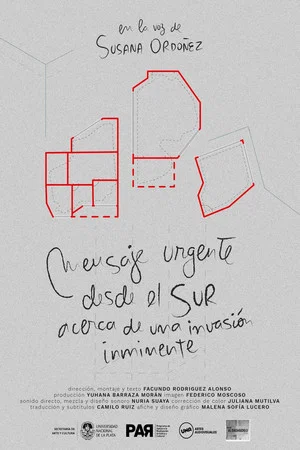 en la voz de
SUSANA ORDOÑEZ
Mensaje urgente
desde el SUR
acerca de una invasión
inminente
dirección, montaje y texto FACUNDO RODRIGUEZ ALONSO
producción YUHANA BARRAZA MORÁN imagen FEDERICO MOSCOSO
sonido directo, mezcla y diseño sonoro NURIA SUAYA corrección de color JULIANA MUTILVA
traducción y subtítulos CAMILO RUIZ afiche y diseño gráfico MALENA SOFÍA LUCERO
SECRETARÍA DE
ARTE Y CULTURA
UNIVERSIDAD
NACIONAL
DE LA PLATA
PAR
UNA
ARTES
AUDIOVISUALES